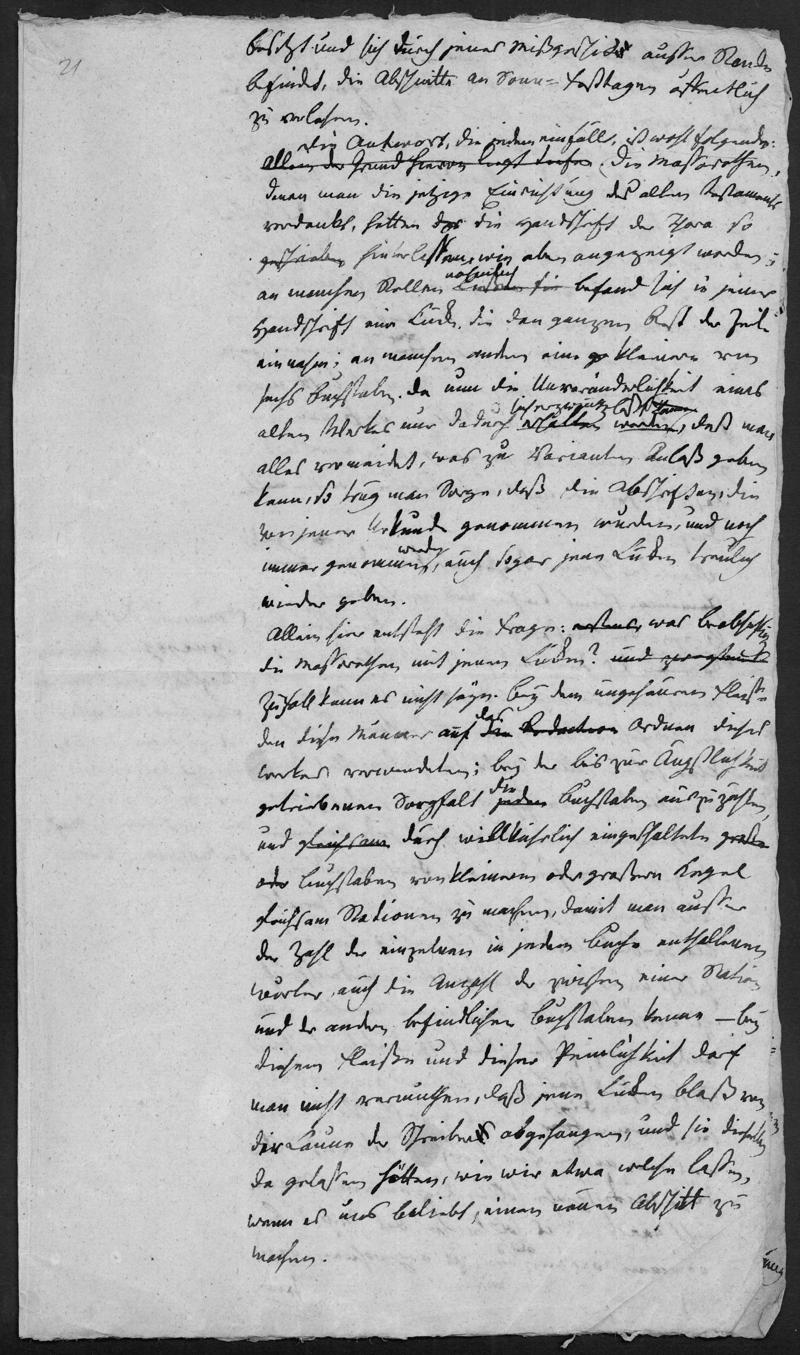 21
besitzt und sich durch jenes Mißgeschick ausser Stande
befindet, die Abschnitte an Sonn- Festtagen öffentlich
zu verlesen.
Die Antwort, die jedem einfällt, ist wohl folgende:
allein der Grund hievon liegt tiefer. Die Massorethen,
denen man die jetzige Einrichtung des alten Testaments
verdankt, hatten die Handschrift der Thora so
geschrieben hinterlassen, wie oben angezeigt worden;
an manchen Stellen nahmlich befand sich in jener
Handschrift eine Lücke, die den ganzen Rest der Zeile
einnahm; an manchen andern eine kleinere von
sechs Buchstaben. Da nun die Unveränderlichkeit eines
alten Werkes nur dadurch sich erzwecken läßt erhalten werden, daß man
alles vermeidet, was zu Varianten Anlaß geben
kann, so trug man Sorge, daß die Abschriften, die
von jener Urkunde genommen wurden, und noch
immer genommen werden, auch sogar jene Lücken treulich
wieder geben.
Allein hier entsteht die Frage: erstens, was beabsichtigten
die Massorethen mit jenen Lücken? und zweytens
Zufall kann es nicht seyn. Bey dem ungeheuren Fleiße
den diese Männer auf das die Redaction Ordnen dieses
Werkes verwendeten; bey der bis zur Ängstlichkeit
getriebenen Sorgfalt die jeden Buchstaben auszuzählen,
und gleichsam durch willkührlich eingeschaltete große
oder Buchstaben von kleinerm oder großerm Kegel
gleichsam Stationen zu machen, damit man ausser
der Zahl der einzelnen in jedem Buche enthaltenen
Wörter, auch die Anzahl der zwischen einer Station
und der andern befindlichen Buchstaben kenne — bey
diesem Fleiße und dieser Peinlichkeit darf
man nicht vermuthen, daß jene Lücken bloß von
der Laune der Schreiber abgehangen, und sie dieselben
da gelassen hätten, wie wir etwa welche lassen,
wenn es uns beliebt, einen neuen Abschitt zu
machen.